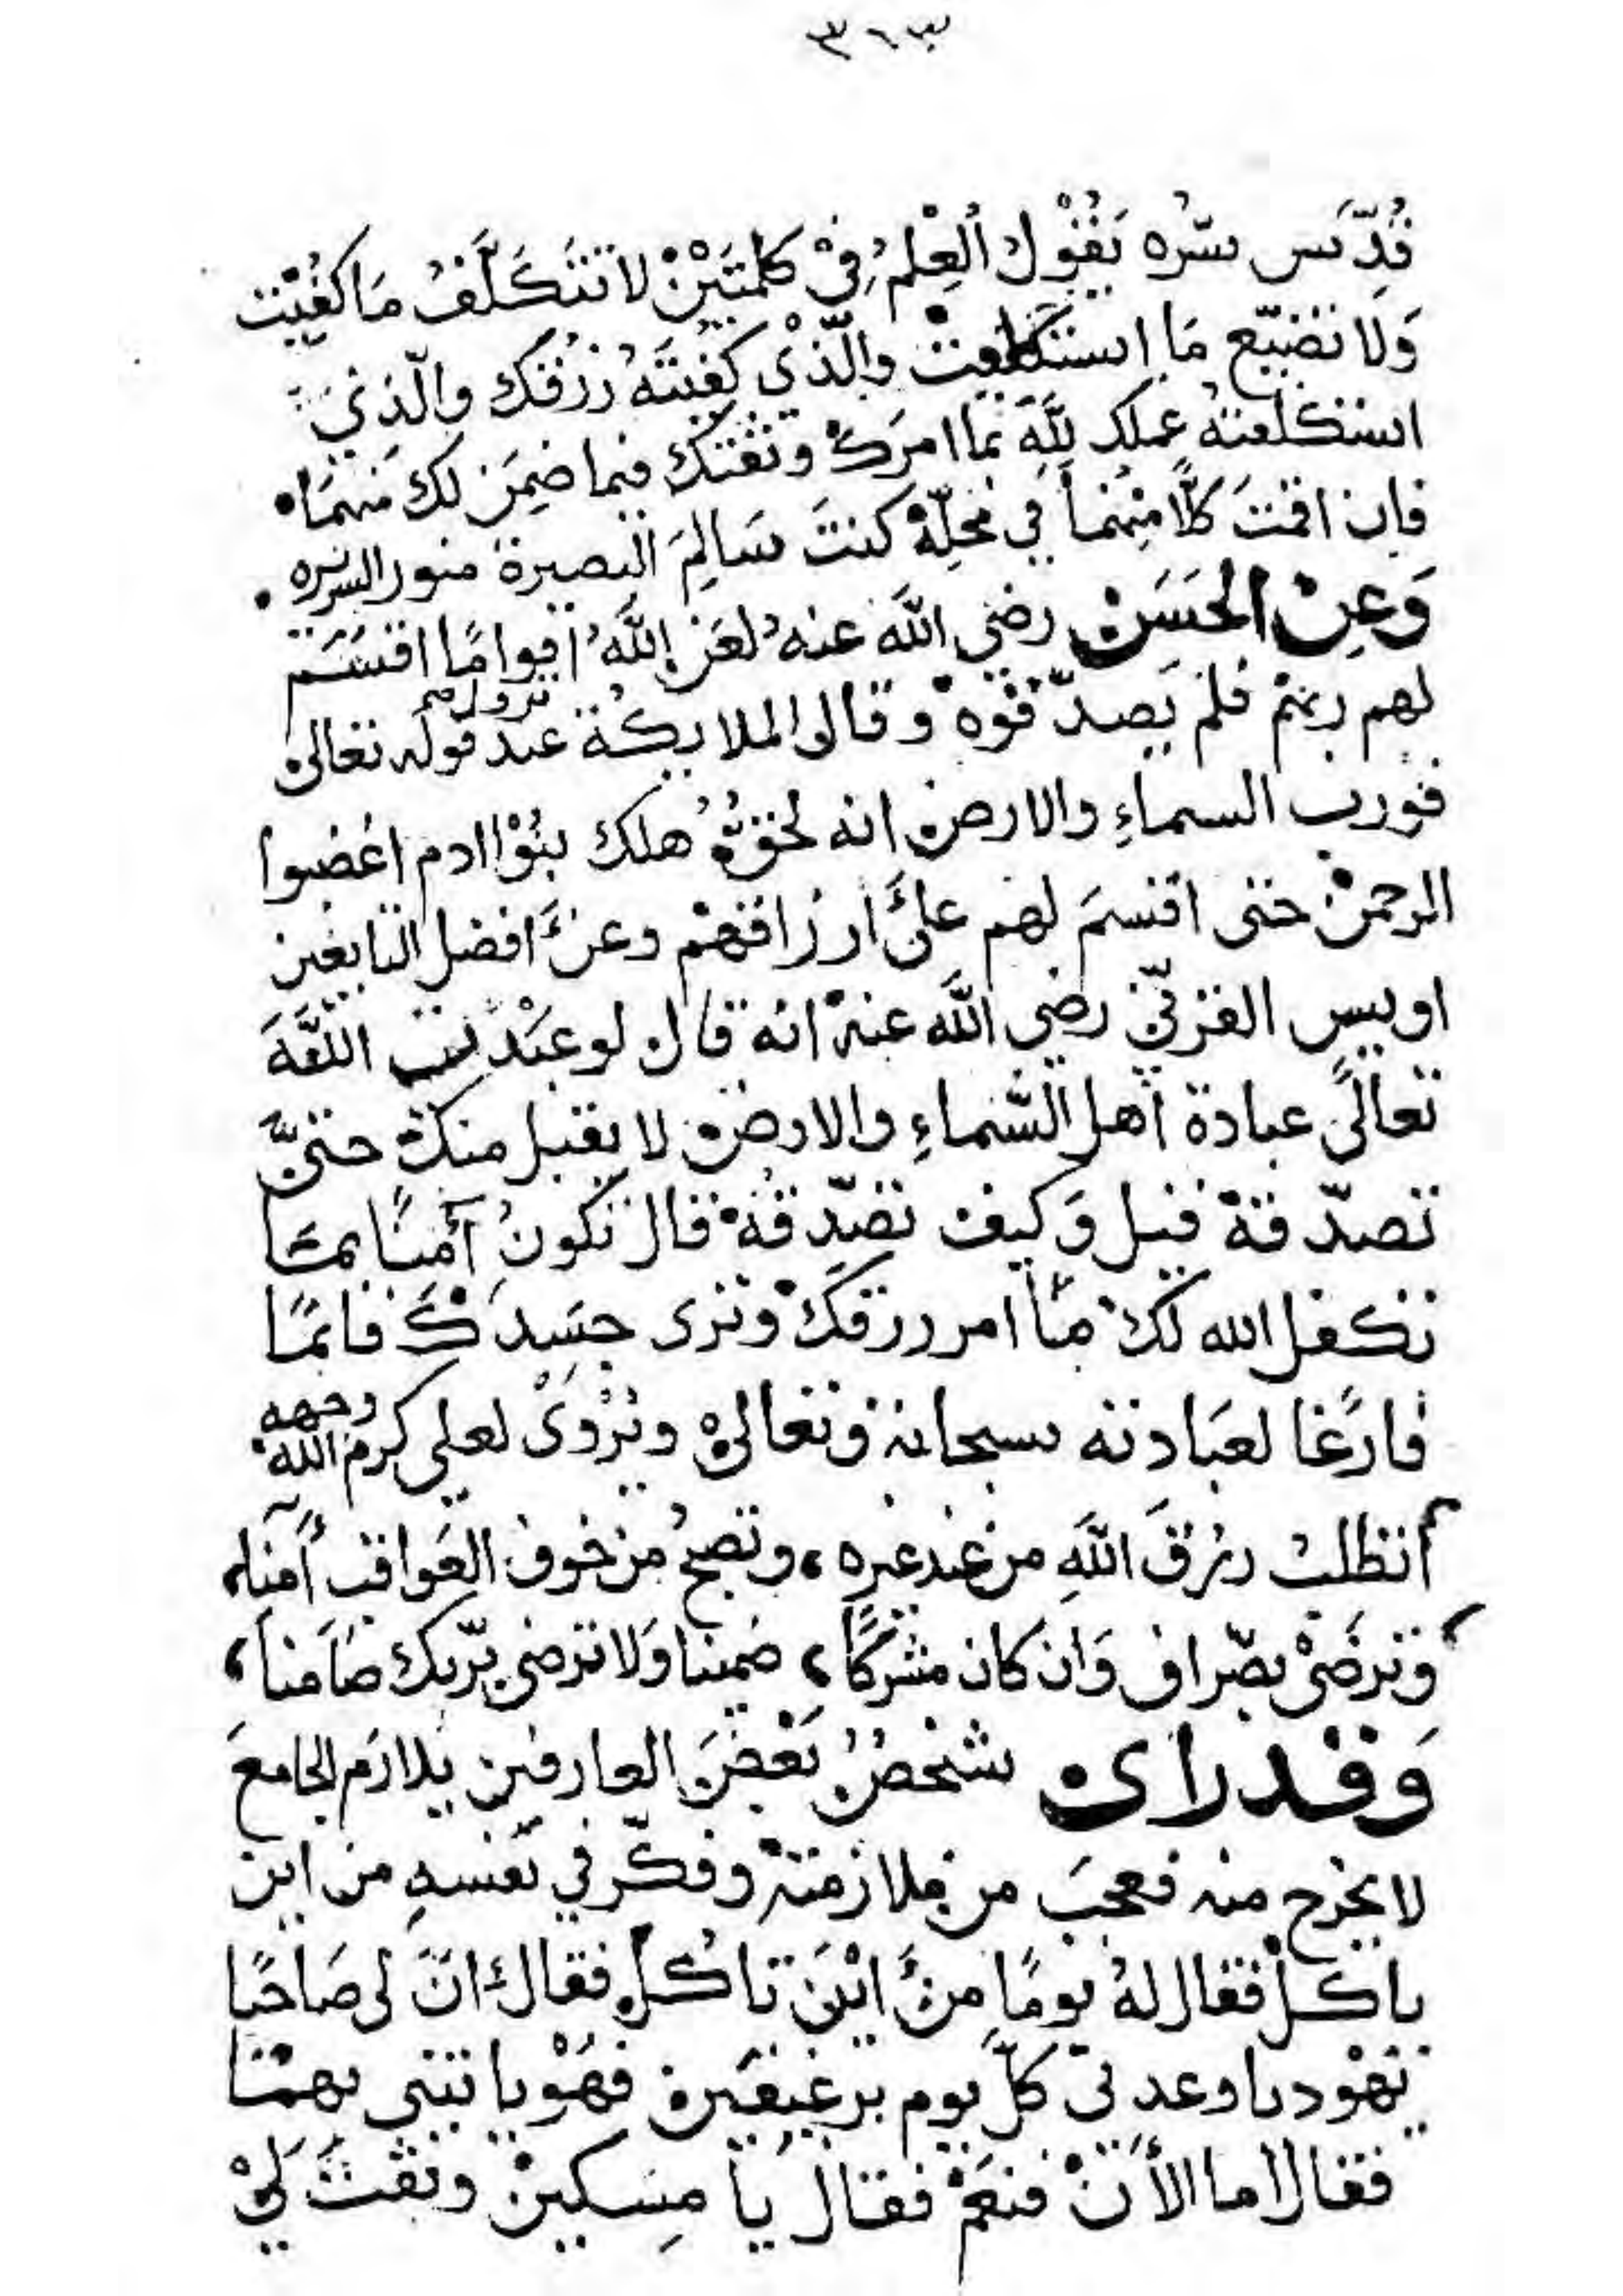 ٣٦٣
قُدِّسَ سِرُّه يَقُوْلُ اَلعِلمُ فِيْ كلمتَيْنْ لا تَتَكَلَّفُ مَا كُفِيْت
وَلا تضيّع مَا استَطعت والّذْي كُفِيتَهُ رزقك والّذِيَ
استطعتهُ عملك للهِ بما امرَك وثقتك فيما ضمِنَ لك منهمَا
فان اقمتَ كلًّا مِنْهُمَا في محلِّهْ كنتَ سَالِمَ البصيرة منور السريره
وَعِنْ الحَسَنْ رضي اللَّه عنهُ لعَن اللَّهُ اقوامًا اقسَمَ
لهم ربهمْ فلم يَصدّقوْهْ وقالى الملايكة عند نزول قوله تعالى
فورب السماءِ والارض انه لحق هلك بنُوْا ادم اغضبوا
الرحمنْ حتى اقسمَ لهم علىَّ ارزاقهمْ وعن افضل التابعين
اويس القرنيّ رضي اللَّه عنهْ انه قال لو عَبْدت اللَّهَ
تعالىً عبادة اهل السَّماءِ والارض لا يقبل منك حتىَّ
تصدّقهْ قيل وَكيف تصَدّقهْ قال تكونُ آمنًا بمَا
تكفل الله لك منْ امر رزقكْ وترى جسَدَكَ قائمًا
فارغًا لعبَادته سبحانه وتعالىْ ويُرْوىْ لعلي كرم الله وجهه
أتطلبُ رزقَ اللَّهِ من عند غيره ، وتصبحُ من خوف العَواقب آمنا ،
وترضَىْ بصّراف وَان كان مشركًا ، ضمينا وَلا ترضى برّبك ضَامنا ،
وَقد راى شخصُ بَعْضَ العارفين يلازم الجامعَ
لا يخرج منه فعجبَ من ملازمتهْ وفكّر في نفسهِ من اين
ياكلْ فقال لهُ يومًا مِنْ ايْنَ تاكلِ فقال انَّ لى صَاحبًا
يَهْوديا وعدنى كلّ يوم برغيفَين فهُوْ ياتيني بهمْا
فقال اما الأنْ فنعَمْ فقال يَا مِسكينْ وثقتَ لِيْ